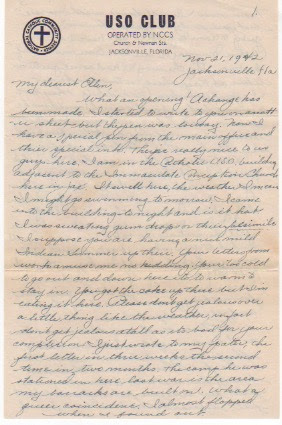 1.
USO CLUB
OPERATED BY NCCS
Church & Newnan Sts.
JACKSONVILLE, FLORIDA
NATIONAL CATHOLIC COMMUNITY SERVICE
Nov 21, 1942
Jacksonville Fla
My dearest
What an opening! A change has
been made. I started to write to you
a sheet but the pen was
have a special pen from the main office and
their special ink. They're really nice to us
guys here. I am in the Catholic USO building
adjacent to the Immaculate Church
here in Jax. It's swell here, the weather I mean
I might go swimming to-morrow. I came
into the building to-night and is it hot
I was sweating gum drops on their
I suppose you are having a much mild
Indian Summer up there. Your letter from
to go out and down here it's to warm to
stay in. You got the coke up there but I'm
eating it here. Please don't get jealous over
a little thing like the weather, infact
don't get jealous at all its bad for your
complexion. I just wrote to my father, the
first letter in three weeks the second
time in two months. The camp he was
stationed in here last war is the area
my barracks are built on. What a
queer coincidence. I almost flopped
when I found out.